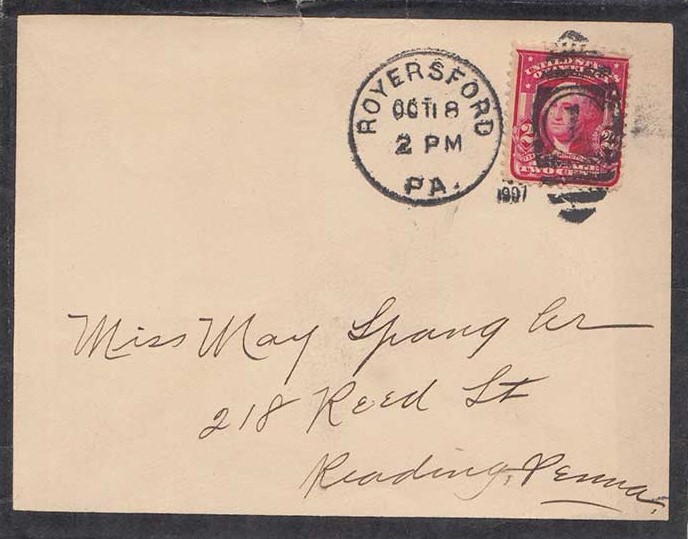 ROYERSFORD
OCT 18
2 PM
PA.
1907
UNITED STATES
2 2
TWO
Miss May Spangler
218 Reed St
Reading, Penna.